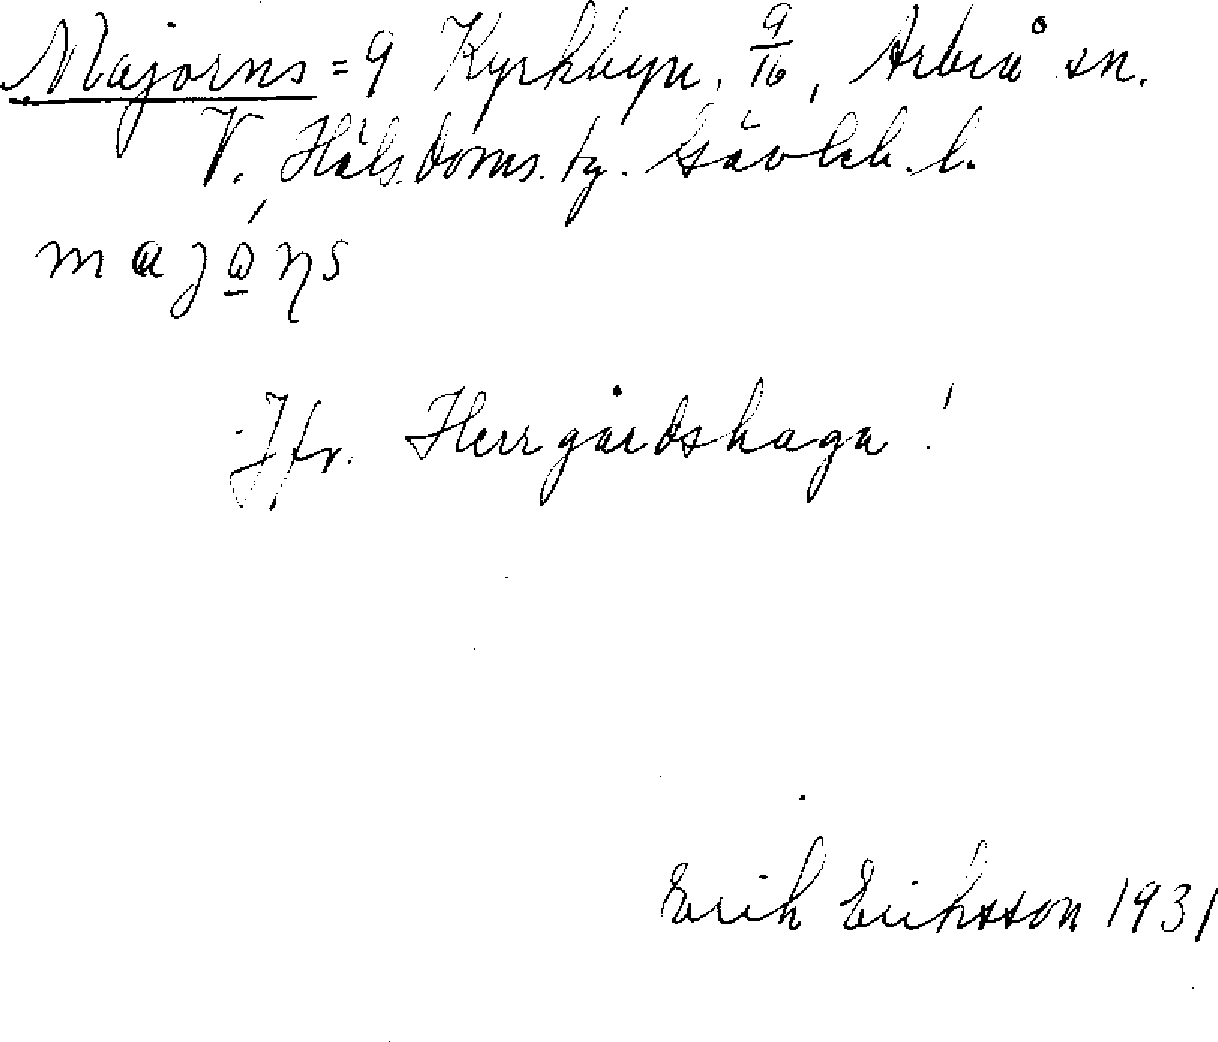 Majorns = 9 Kyrkbyn, 9/16, Arbrå sn.
V. Häls. Doms. tg. Gävleb. l.
majó̲ṇs
Jfr. Herrgårdshaga!
Erik Eriksson 1931